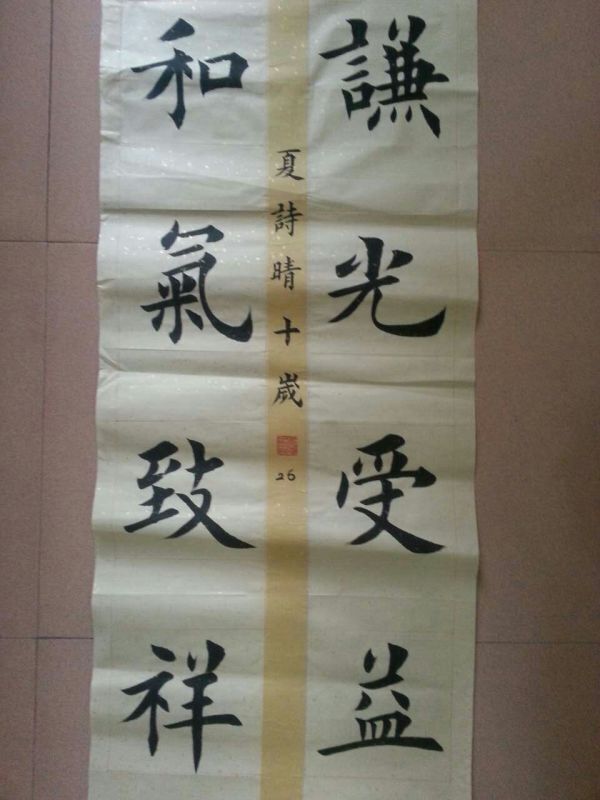 謙光受益
和氣致祥
夏詩晴十歲
26